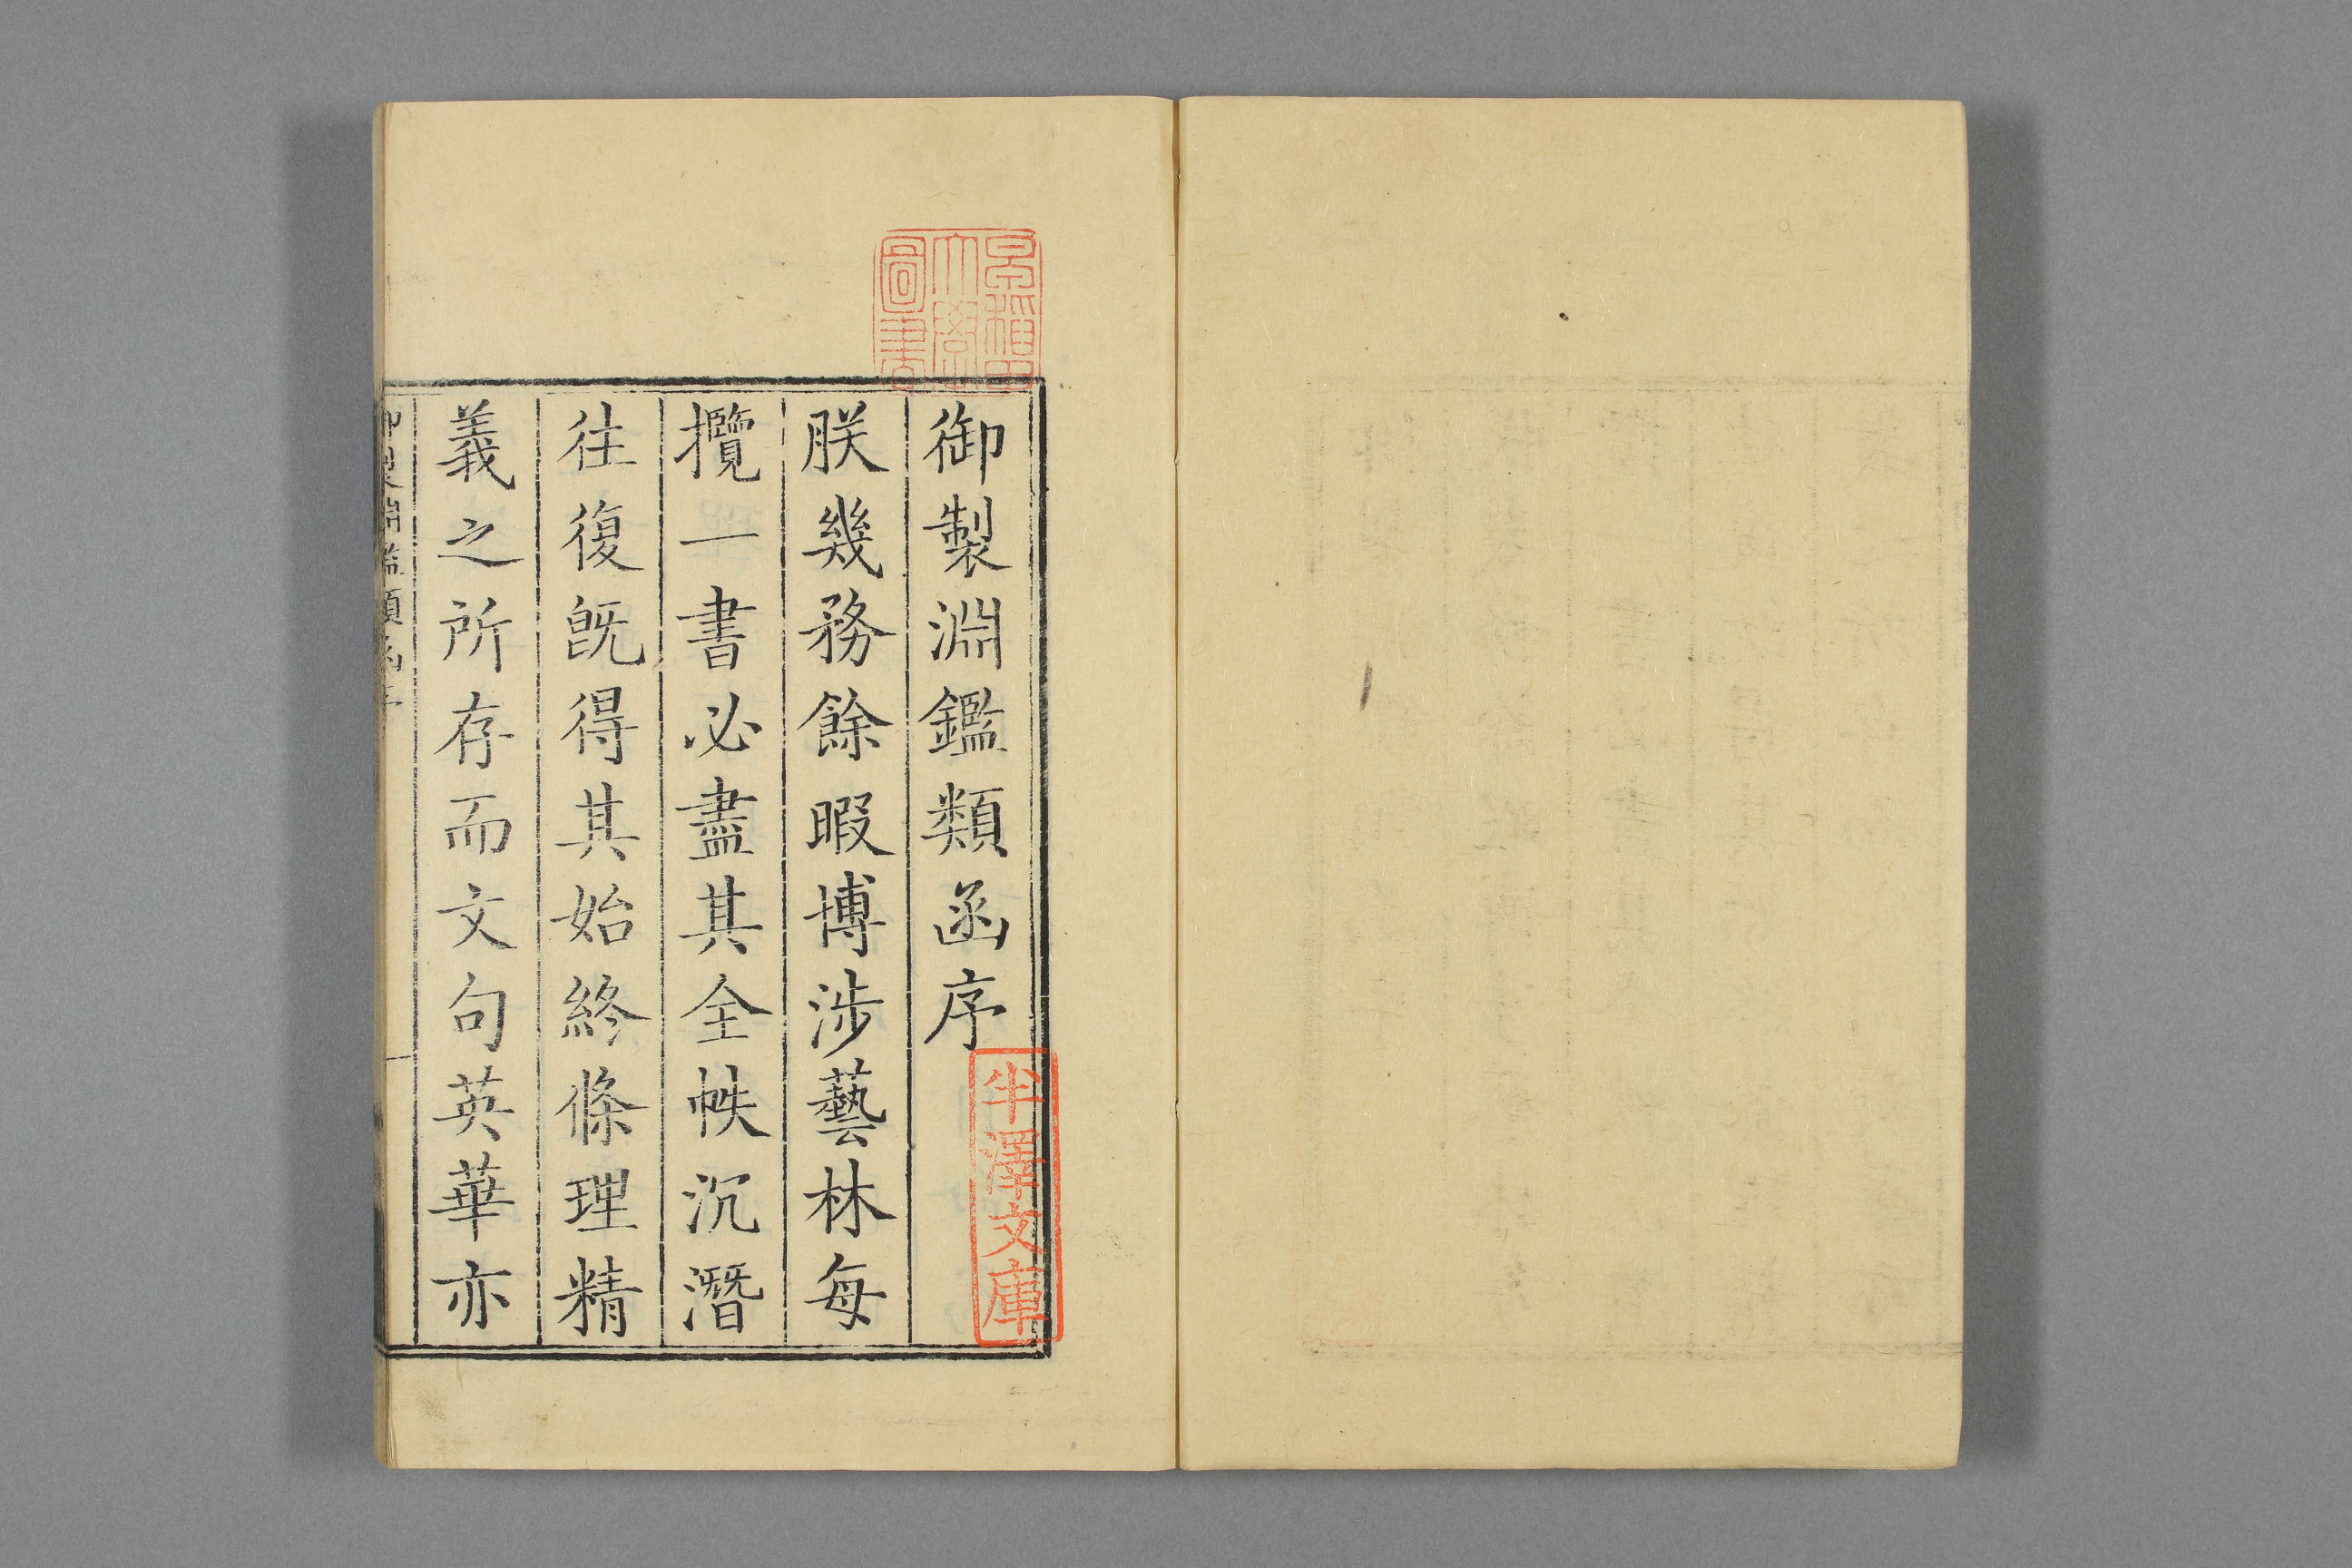 御製淵鑑類函序
朕幾務餘暇博涉藝林每
攬一書必盡其全帙沉潛
往復旣得其始終條理精
義之所存而文句英華亦
御製淵鑑類函序
一
早稻田
大學
圖書
半澤文庫